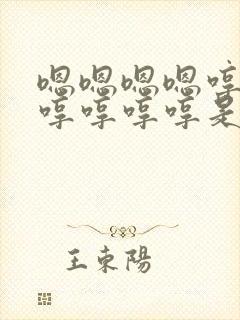 嗯嗯嗯嗯哼
哼哼哼哼是
王東陽